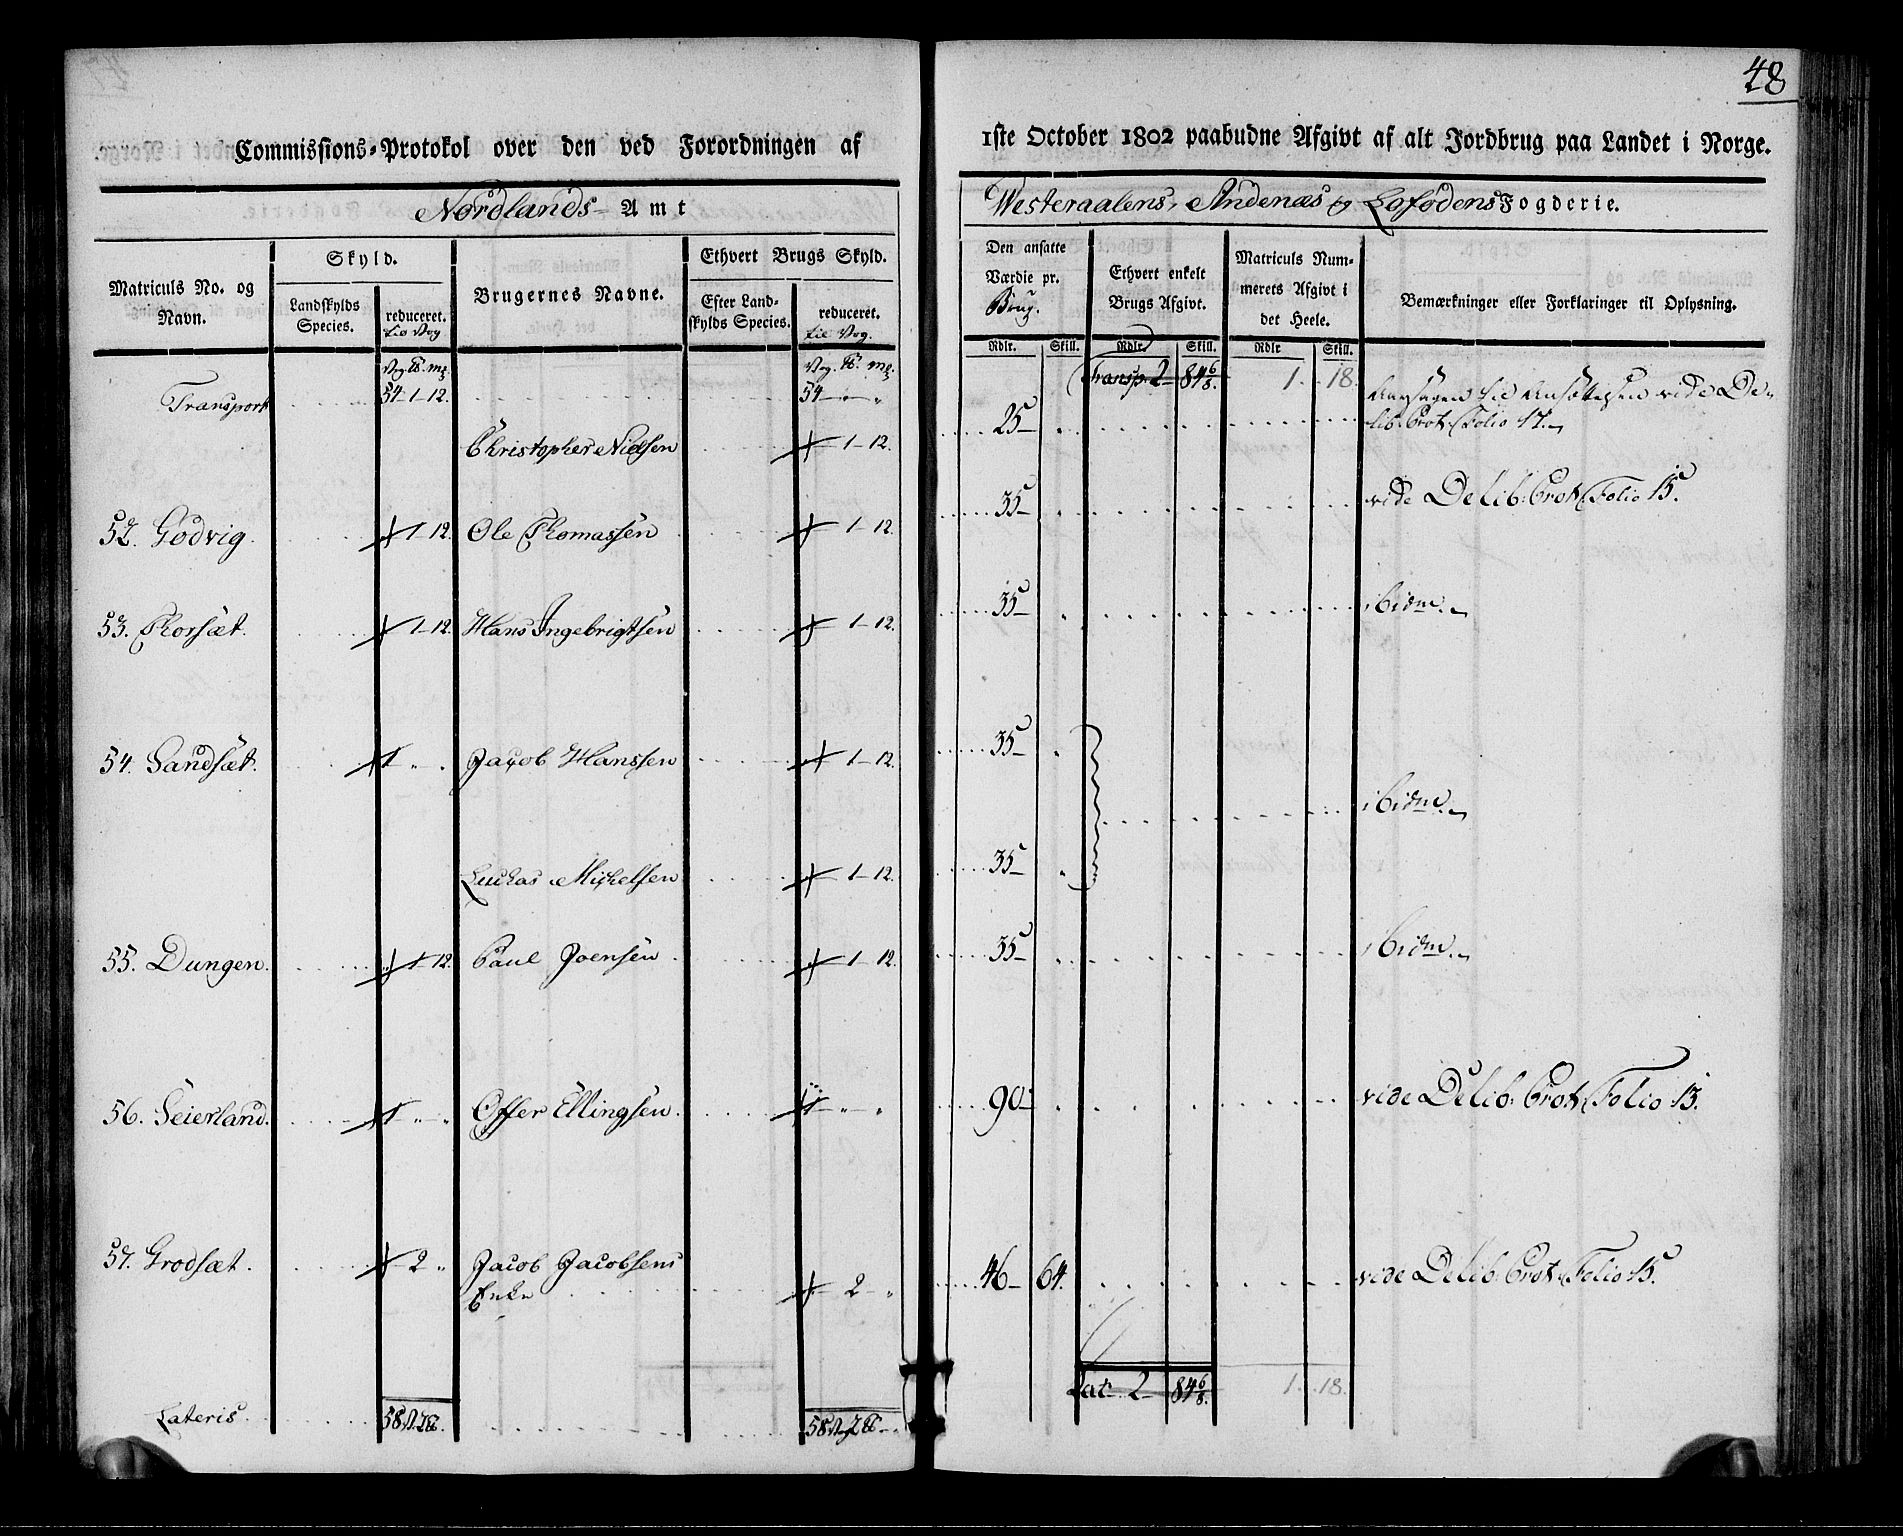 48
Commissions-Protokol over den ved Forordningen af 1ste October 1802 paabudne Afgivt af alt Jordbrug paa Landet i Norge.
Nordlands Amt
Westeraalens, Andenæs og Lofodens Fogderie.
Matriculs No. og Navn.
Skyld.
Landskylds Species.
reduceret. til Vog
Brugernes Navne.
Ethvert Brugs Skyld.
Efter Landskylds Species.
reduceret. til Vog.
Den ansatte Værdie pr. Brug.
Ethvert enkelt Brugs Afgivt.
Matriculs Nummerets Afgivt i det Heele.
Bemærkninger eller Forklaringer til Oplysning.
Rdlr. Skill. Rdlr. Skill. Rdlr Skill.
Transport 54-1-12. 54 - " - " Transp. 2 84 6/8. 1. 18.
Christopher Nielsen 1-12. 25 Aarsagen til Ansættelsen vide Delib: Prot: Folio 17.
52. Godvig. 1-12. Ole Thomassen 1-12. 35 vide Delib: Prot: Folio 15.
53. Thorsæt. 1-12. Hans Ingebrigtsen 1-12. 35 ibidm.
54. Sandsæt. 1 " " Jacob Hanssen 1-12. 35
ibidm.
Luchas Michelsen 1-12. 35
55. Dungen. 1-12. Paul Joensen 1-12. 35 ibidm.
56. Seierland. 1 " " Offer Ellingsen. 1 " " 90 vide Delib: Prot: Folio 13.
57. Grodsæt. 2 " Jacob Jacobsens Enke 2 " 46 64. vide Delib: Prot: Folio 15.
Lateris. Lat. 2 84 6/8. 1. 18.